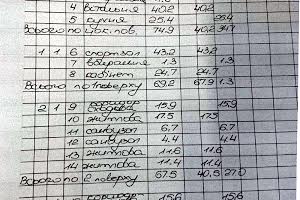 4 Вітальня 40.2 40.2
5 кухня 25.4 25.4
Всього по цок. пов. 74.9 40.2 34.7
1 1 6 спортзал 43.2 43.2
7 вбиральня 1.3 1.3
8 кабінет 24.7 24.7
Всього по 1 поверху 69.2 67.9 1.3
2 1 9 коридор 15.9 15.9
10 житлова 17.5 17.5
11 санвузол 6.7 6.7
12 санвузол 4.4 4.4
13 житлова 11.6 11.6
14 житлова 11.4 11.4
Всього по 2 поверху 67.5 40.5 27.0
15.6 15.6